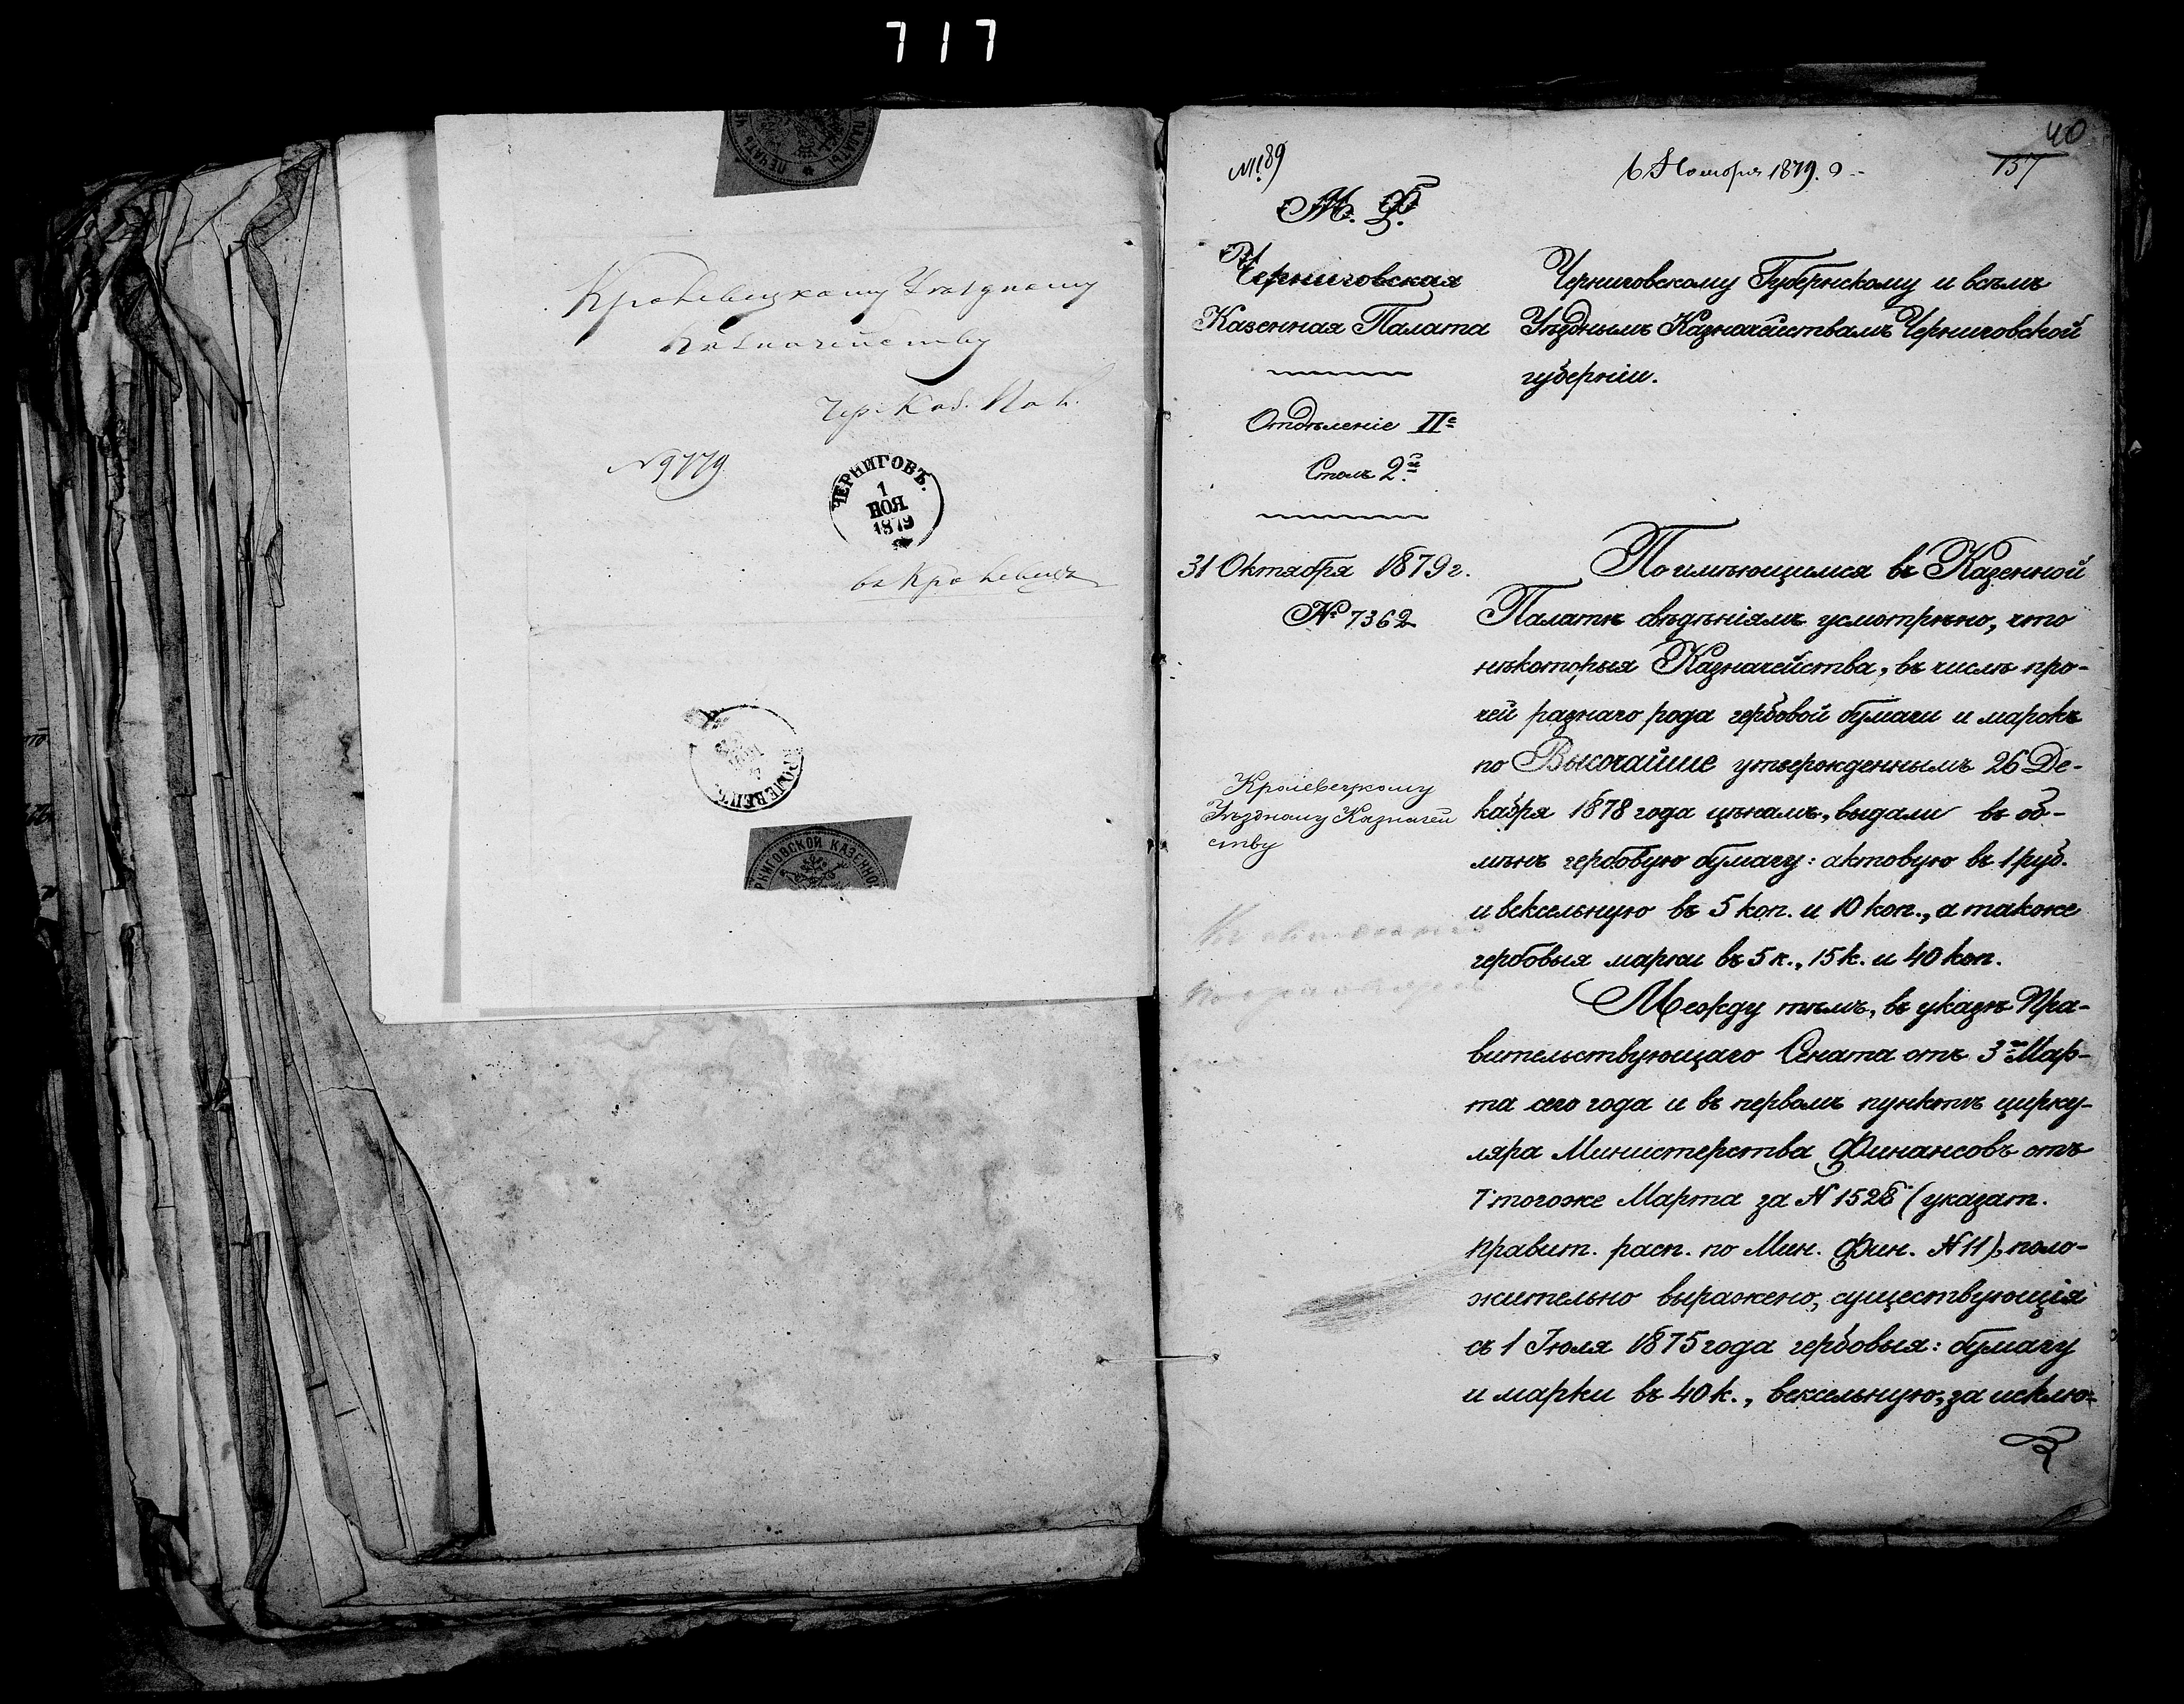 717
ПЕЧАТЬ ПАЛАТЫ
Кролевецкому Уездному
Казначейству
Чер. Каз. Пал.
№ 9779
ЧЕРНИГОВЪ.
1
НОЯ
1879
въ Кролевецъ
КРОЛЕВЕЦЪ
ЧЕРНИГОВСКОЙ КАЗЕННОЙ
40
137
№ 89
6 Ноября 1879 г.
М. Ф.
Черниговская
Казенная Палата
Отдѣленіе II е
Столъ 2 й
31 Октября 1879 г.
№ 7362
Кролевецкому
Уѣздному Казначей
ству
Черниговскому Губернскому и всѣмъ
Уѣзднымъ Казначействамъ Черниговской
губерніи.
По имѣющимся въ Казенной
Палатѣ свѣдѣніямъ усмотрѣно, что
нѣкоторыя Казначейства, въ числѣ про-
чей разнаго рода гербовой бумаги и марокъ
по Высочайше утвержденнымъ 26 Де-
кабря 1878 года цѣнамъ, выдали въ об-
мѣнъ гербовую бумагу: актовую въ 1 руб.
и вексельную въ 5 коп. и 10 коп., а также
гербовыя марки въ 5 к., 15 к. и 40 коп.
Между тѣмъ, въ указѣ Пра-
вительствующаго Сената отъ 3 го Мар-
та сего года и въ первомъ пунктѣ цирку-
ляра Министерства Финансовъ отъ
7 тогоже Марта за № 1528 (указат.
правит. расп. по Мин. Фин. № 11), поло-
жительно выражено, существующія
съ 1 Іюля 1875 года гербовыя: бумагу
и марки въ 40 к., вексельную, за исклю-